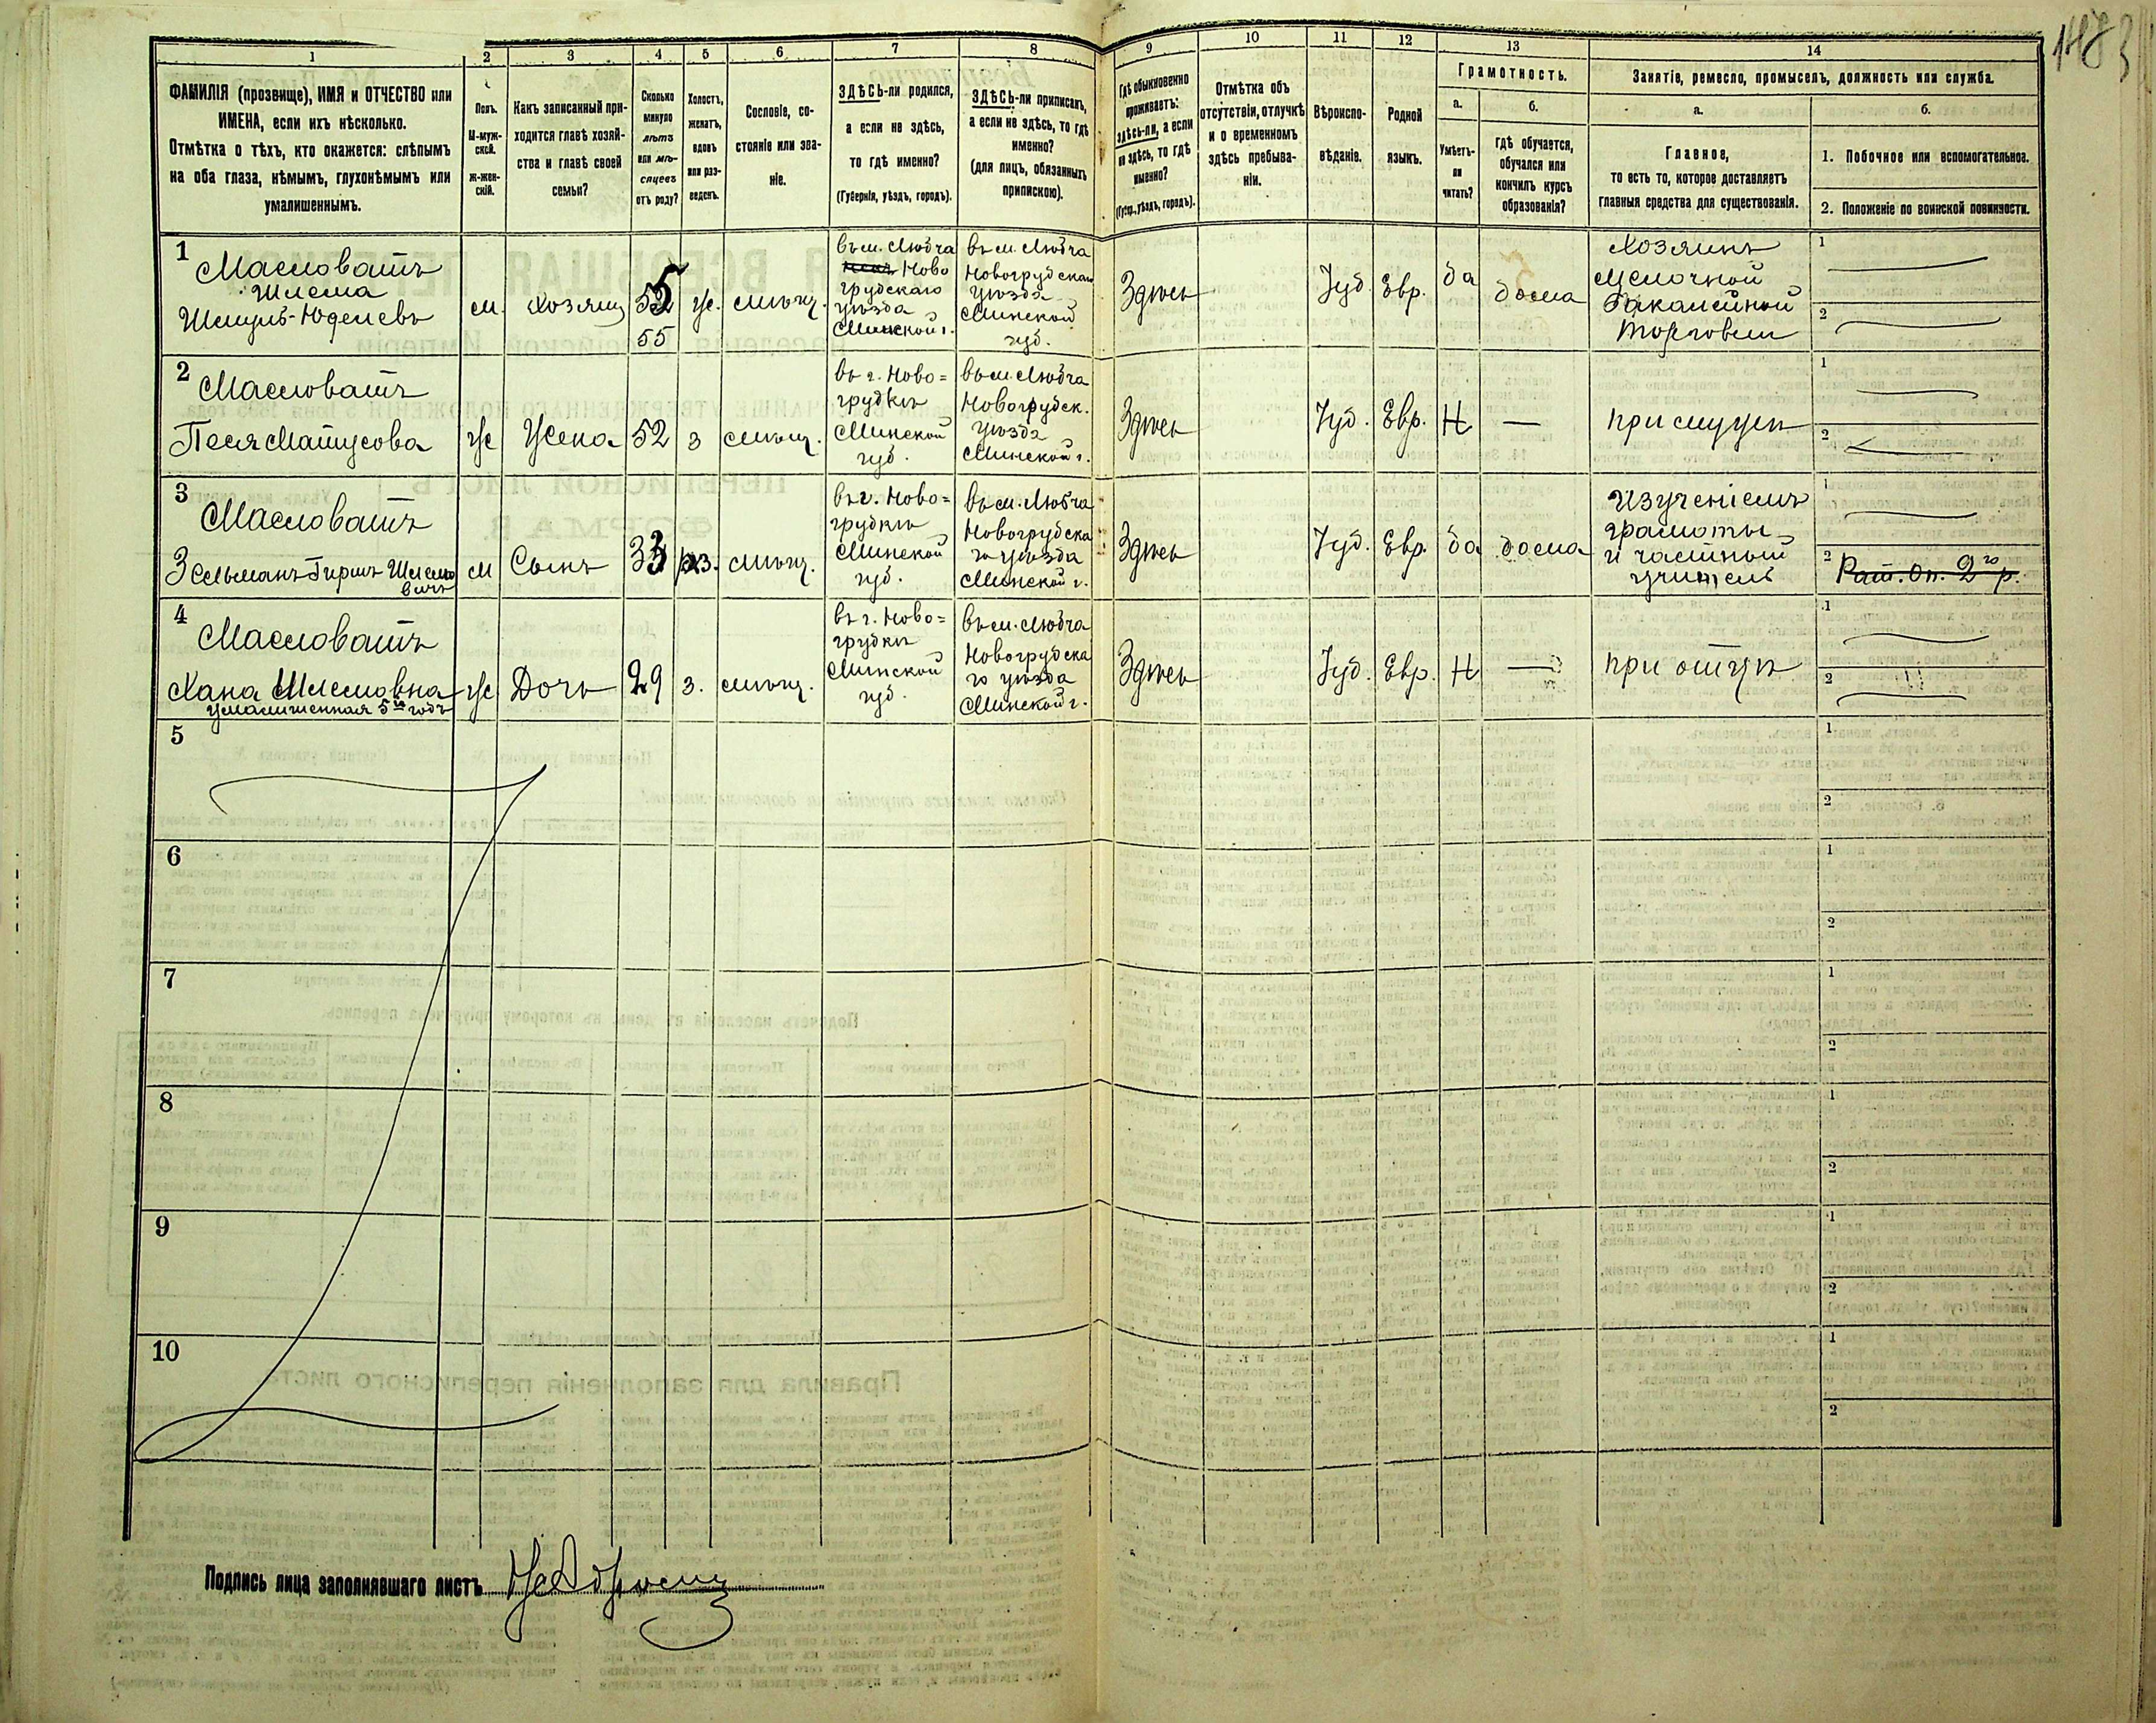 1
2
3
4
5
6
7
8
9
10
11
12
13
14
ФАМИЛІЯ (прозвище), ИМЯ и ОТЧЕСТВО или
ИМЕНА, если ихъ нѣсколько.
Отмѣтка о тѣхъ, кто окажется: слѣпымъ
на оба глаза, нѣмымъ, глухонѣмымъ или
умалишеннымъ.
Полъ.
М-муж-
ской.
ж-жен-
скій.
Какъ записанный при-
ходится главѣ хозяй-
ства и главѣ своей
семьи?
Сколько
минуло
лѣтъ
или мѣ-
сяцевъ
отъ роду?
Холостъ,
женатъ,
вдовъ
или раз-
веденъ.
Сословіе, со-
стояніе или зва-
ніе.
ЗДѢСЬ-ли родился,
а если не здѣсь,
то гдѣ именно?
(Губернія, уѣздъ, городъ).
ЗДѢСЬ-ли приписанъ,
а если не здѣсь, то гдѣ
именно?
(для лицъ, обязанныхъ
припискою).
Гдѣ обыкновенно
проживаетъ:
здѣсь-ли, а если
не здѣсь, то гдѣ
именно?
(Губер., уѣздъ, городъ).
Отмѣтка объ
отсутствіи, отлучкѣ
и о временномъ
здѣсь пребыва-
ніи.
Вѣроиспо-
вѣданіе.
Родной
языкъ.
Грамотность.
а.
Умѣетъ-
ли
читать?
б.
гдѣ обучается,
обучался или
кончилъ курсъ
образованія?
Занятіе, ремесло, промыселъ, должность или служба.
а.
Главное,
то есть то, которое доставляетъ
главныя средства для существованія.
б.
1. Побочное или вспомогательное.
2. Положеніе по воинской повинности.
1
Масловатъ
Шлема
Шмуль-Юделевъ
м.
хозяинъ
52
5
55
ж.
мѣщ.
въ м. Любча
Ново
грудскаго
уѣзда
Минской г.
въ м. Любча
Новогрудскаго
уѣзда
Минской
губ.
Здѣсь
Іуд.
Евр.
да
дома
Хозяинъ
мелочной
бакалейной
торговли
1
2
2
Масловатъ
Песя Матусова
ж
Жена
52
з
мѣщ.
въ г. Ново=
грудкѣ
Минской
губ.
въ м. Любча
Новогрудск.
уѣзда
Минской г.
Здѣсь
Іуд.
Евр.
Н
—
при мужѣ
1
2
3
Масловатъ
Зельманъ-Гиршъ Шлемо
вичъ
м
Сынъ
33
мѣщ.
въ г. Ново=
грудкѣ
Минской
губ.
въ м. Любча
Новогрудска
го уѣзда
Минской г.
Здѣсь
Іуд.
Евр.
да
дома
изученіемъ
грамоты
и частный
учитель
1
2
Рат. Оп. 2го р.
4
Масловатъ
Хана Шлемовна
умалишенная 5ть годъ
ж
Дочь
29
з.
мѣщ.
въ г. Ново=
грудкѣ
Минской
губ.
въ м. Любча
Новогрудска
го уѣзда
Минской г.
Здѣсь
Іуд.
Евр.
Н
—
при отцѣ
1
2
5
1
2
6
1
2
7
1
2
8
1
2
9
1
2
10
1
2
Подпись лица заполнявшаго листъ